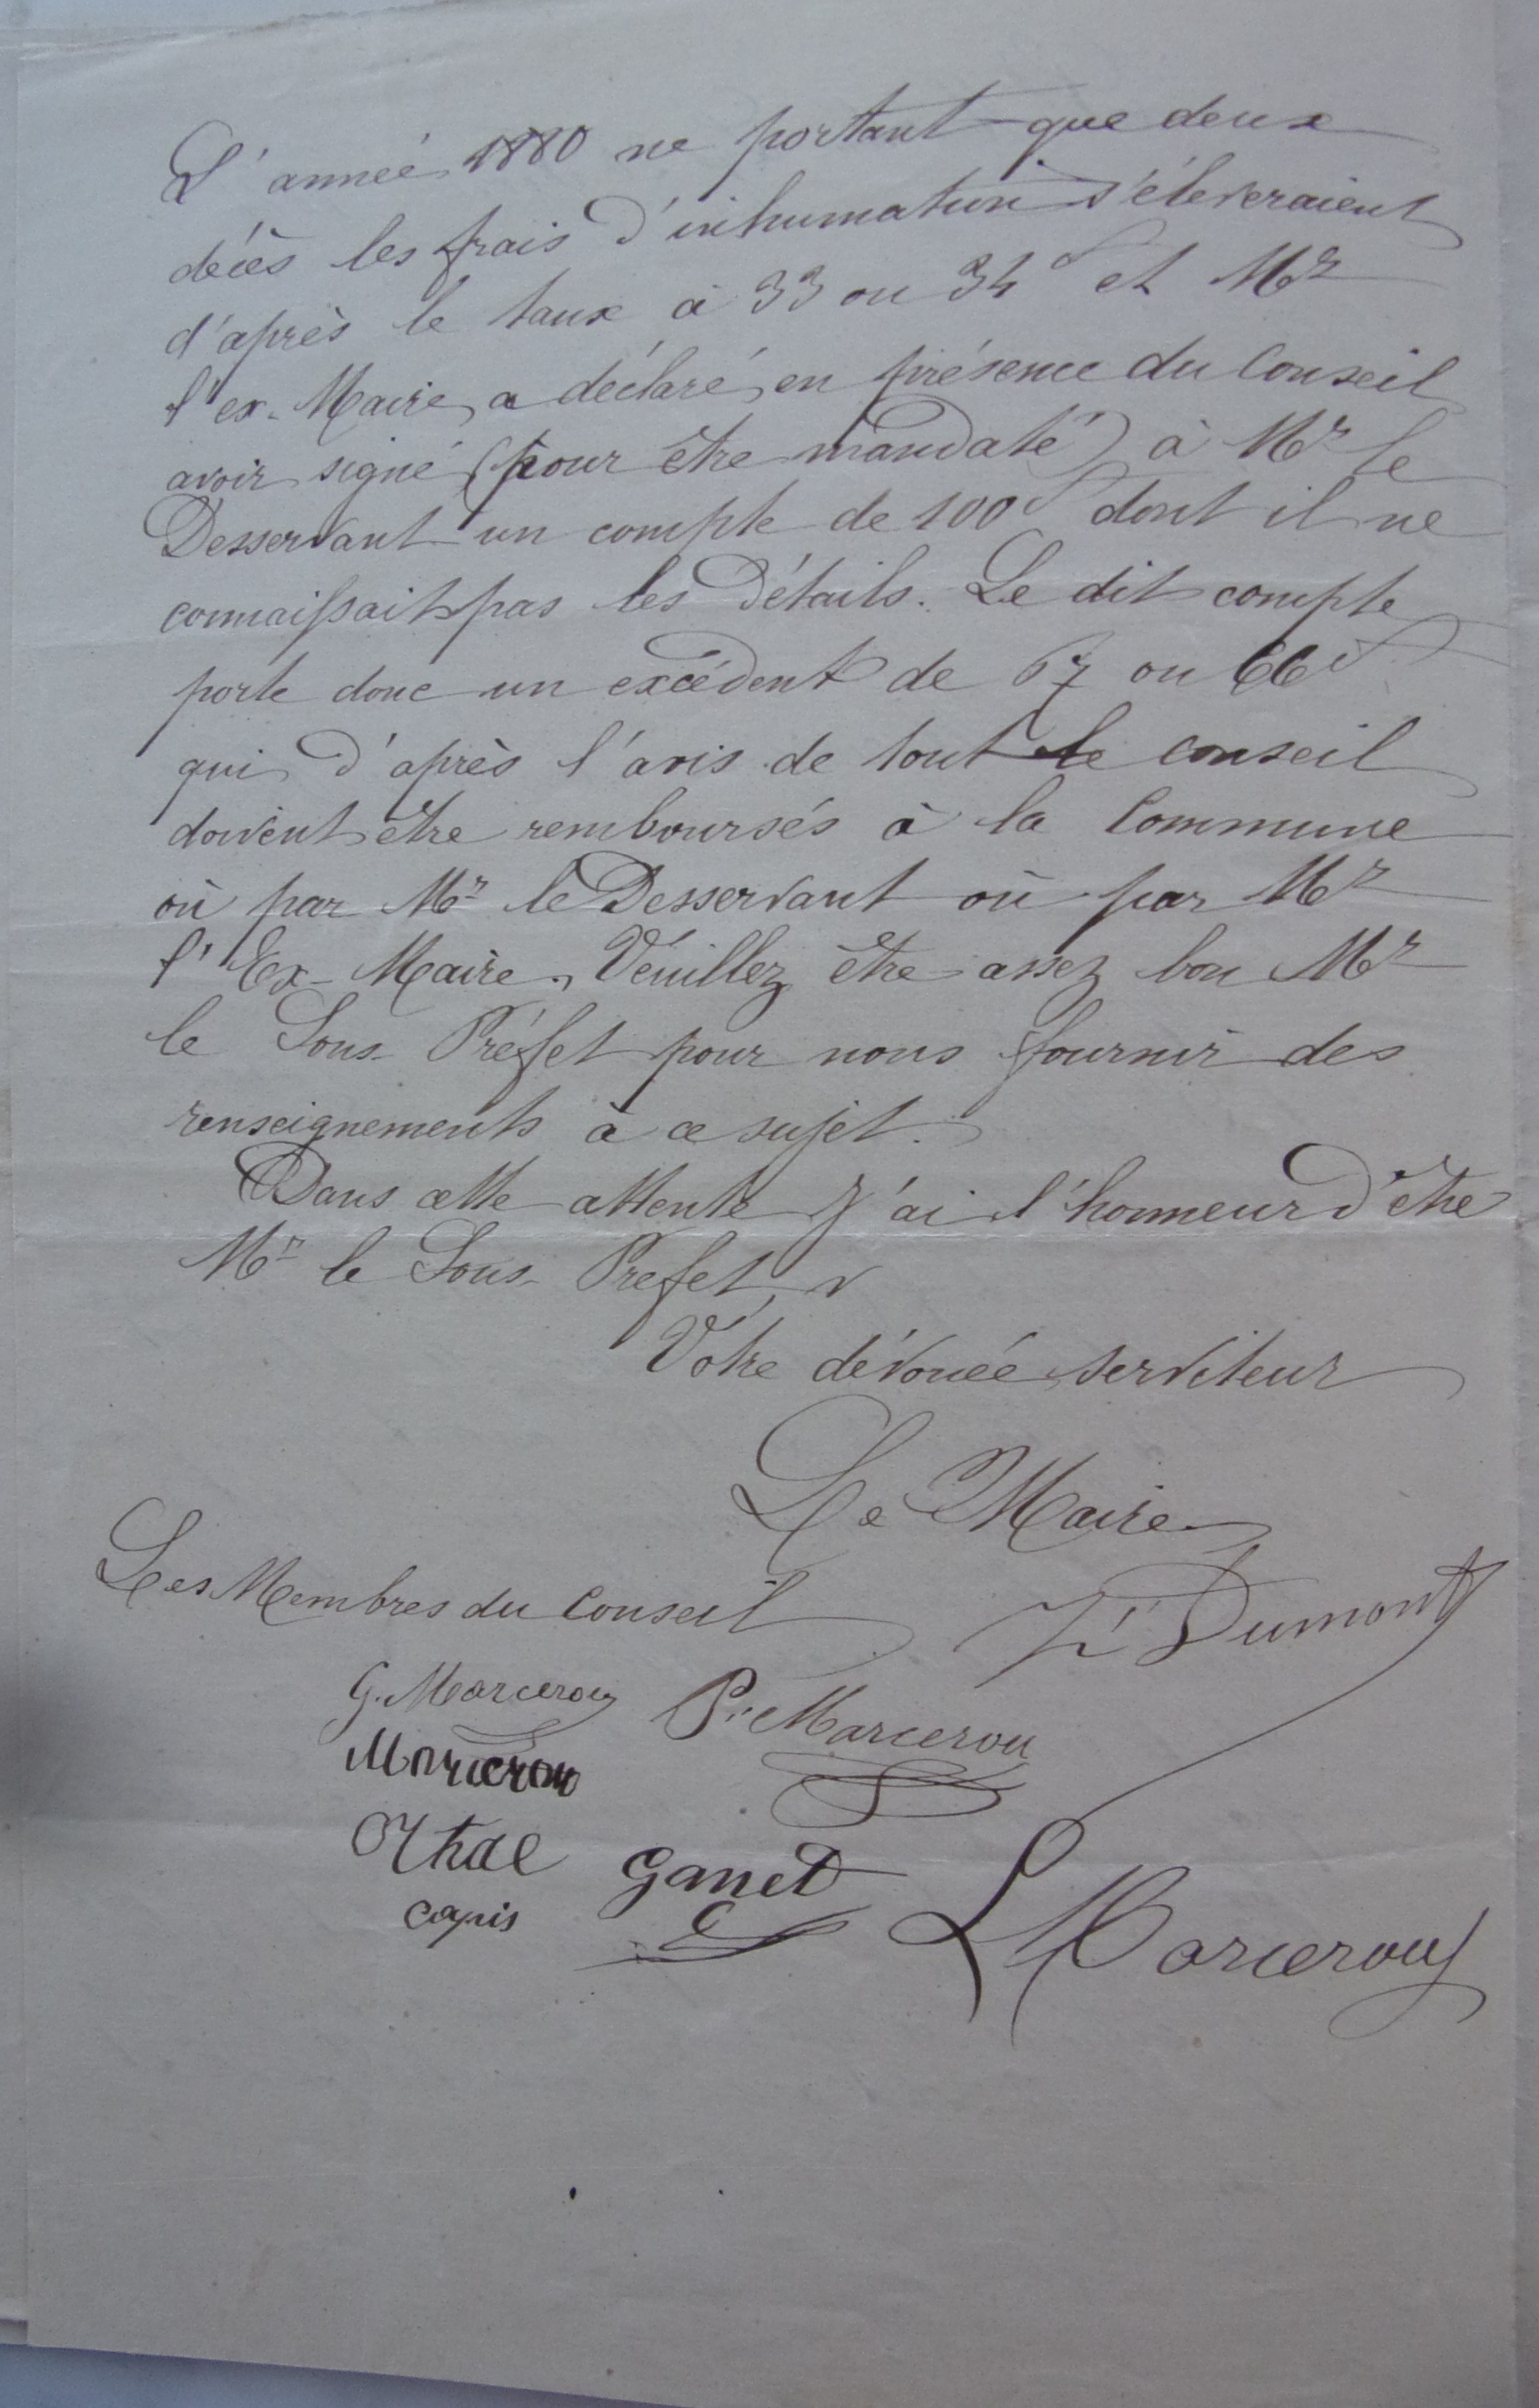 L'année 1880 ne portant que deux
décès les frais d'inhumation s'éleveraient
d'après le taux à 33 ou 34 f et Mr
l'ex-Maire a déclaré en présence du Conseil
avoir signé (pour être mandaté) à Mr le
Desservant un compte de 100 f dont il ne
connaissait pas les détails. Le dit compte
porte donc un excédent de 67 ou 66 f
qui d'après l'avis de tout le conseil
doivent être remboursés à la Commune
où par Mr le Desservant où par Mr
l'Ex-Maire. Veuillez être assez bon Mr
le Sous-Préfet pour nous fournir des
renseignements à ce sujet.
Dans cette attente j'ai l'honneur d'être
Mr le Sous-Préfet,
Vôtre dévouée serviteur
Le Maire
Dumont
Les Membres du Conseil
G. Marcerou P. Marcerou
Marcerou
Vidal Ganet
Capis L Marcerou